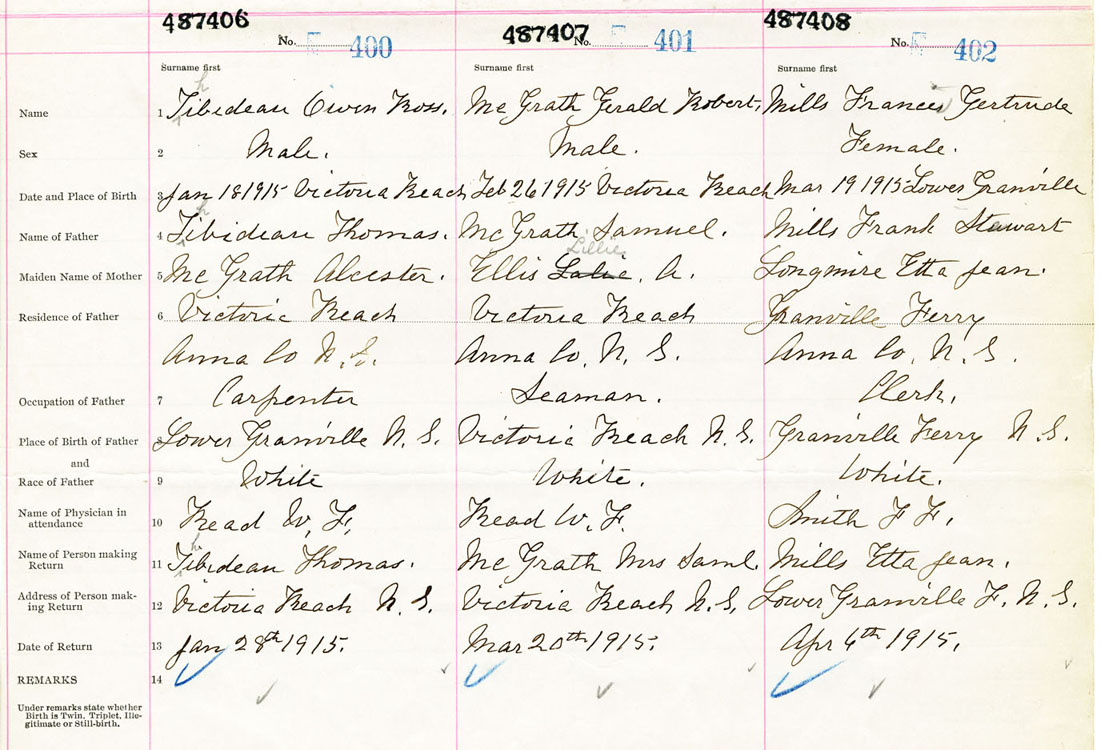 487406 487407 487408
No. 400 No. 401 No. 402
Surname first Surname first Surname first
Name 1 Tibideau Owen Ross. Mc Grath Gerald Robert. Mills Frances Gertrude
h
Sex 2 Male. Male. Female.
Date and Place of Birth 3 Jan 18 1915 Victoria Beach Feb 26 1915 Victoria Beach Mar 19 1915 Lower Granville
Name of Father 4 Tibideau Thomas. Mc Grath Samuel. Mills Frank Stewart
h
Lillie
Maiden Name of Mother 5 Mc Grath Alcester. Ellis A. Longmire Etta Jean.
Residence of Father 6 Victoria Beach Victoria Beach Granville Ferry
Anna Co N.S. Anna Co, N, S. Anna Co, N. S.
Occupation of Father 7 Carpenter Seaman. Clerk.
Place of Birth of Father 8 Lower Granville N. S. Victoria Beach N. S. Granville Ferry N. S.
and
Race of Father 9 White White. White.
Name of Physician in
attendance 10 Read W. F. Read W. F. Smith F F.
Name of Person making
Return 11 Tibideau Thomas. Mc Grath Mrs Saml. Mills Etta Jean.
h
Address of Person mak-
ing Return 12 Victoria Beach N. S. Victoria Beach N. S, Lower Granville F. N. S.
Date of Return 13 Jan 28th 1915. Mar 20th 1915. Apr 6th 1915.
REMARKS 14
Under remarks state whether
Birth is Twin, Triplet, Ille-
gitimate or Still-birth.